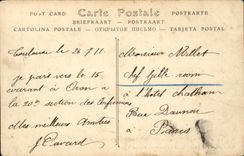 POST CARD Carte Postale POSTKARTE
BRIEFKAART - POSTKAART
CARTOLINA POSTALE - ОТКРЫТОЕ ПИСЬМО - TARJETA POSTAL
Toulouse le 26-9-11
Je pars vers le 15
courant à Oran à
la 20e section des Infirmiers
Mes meilleurs Amitiés
Monsieur Millet
chef Grill room
à l'hôtel
Rue Daunou
à Paris